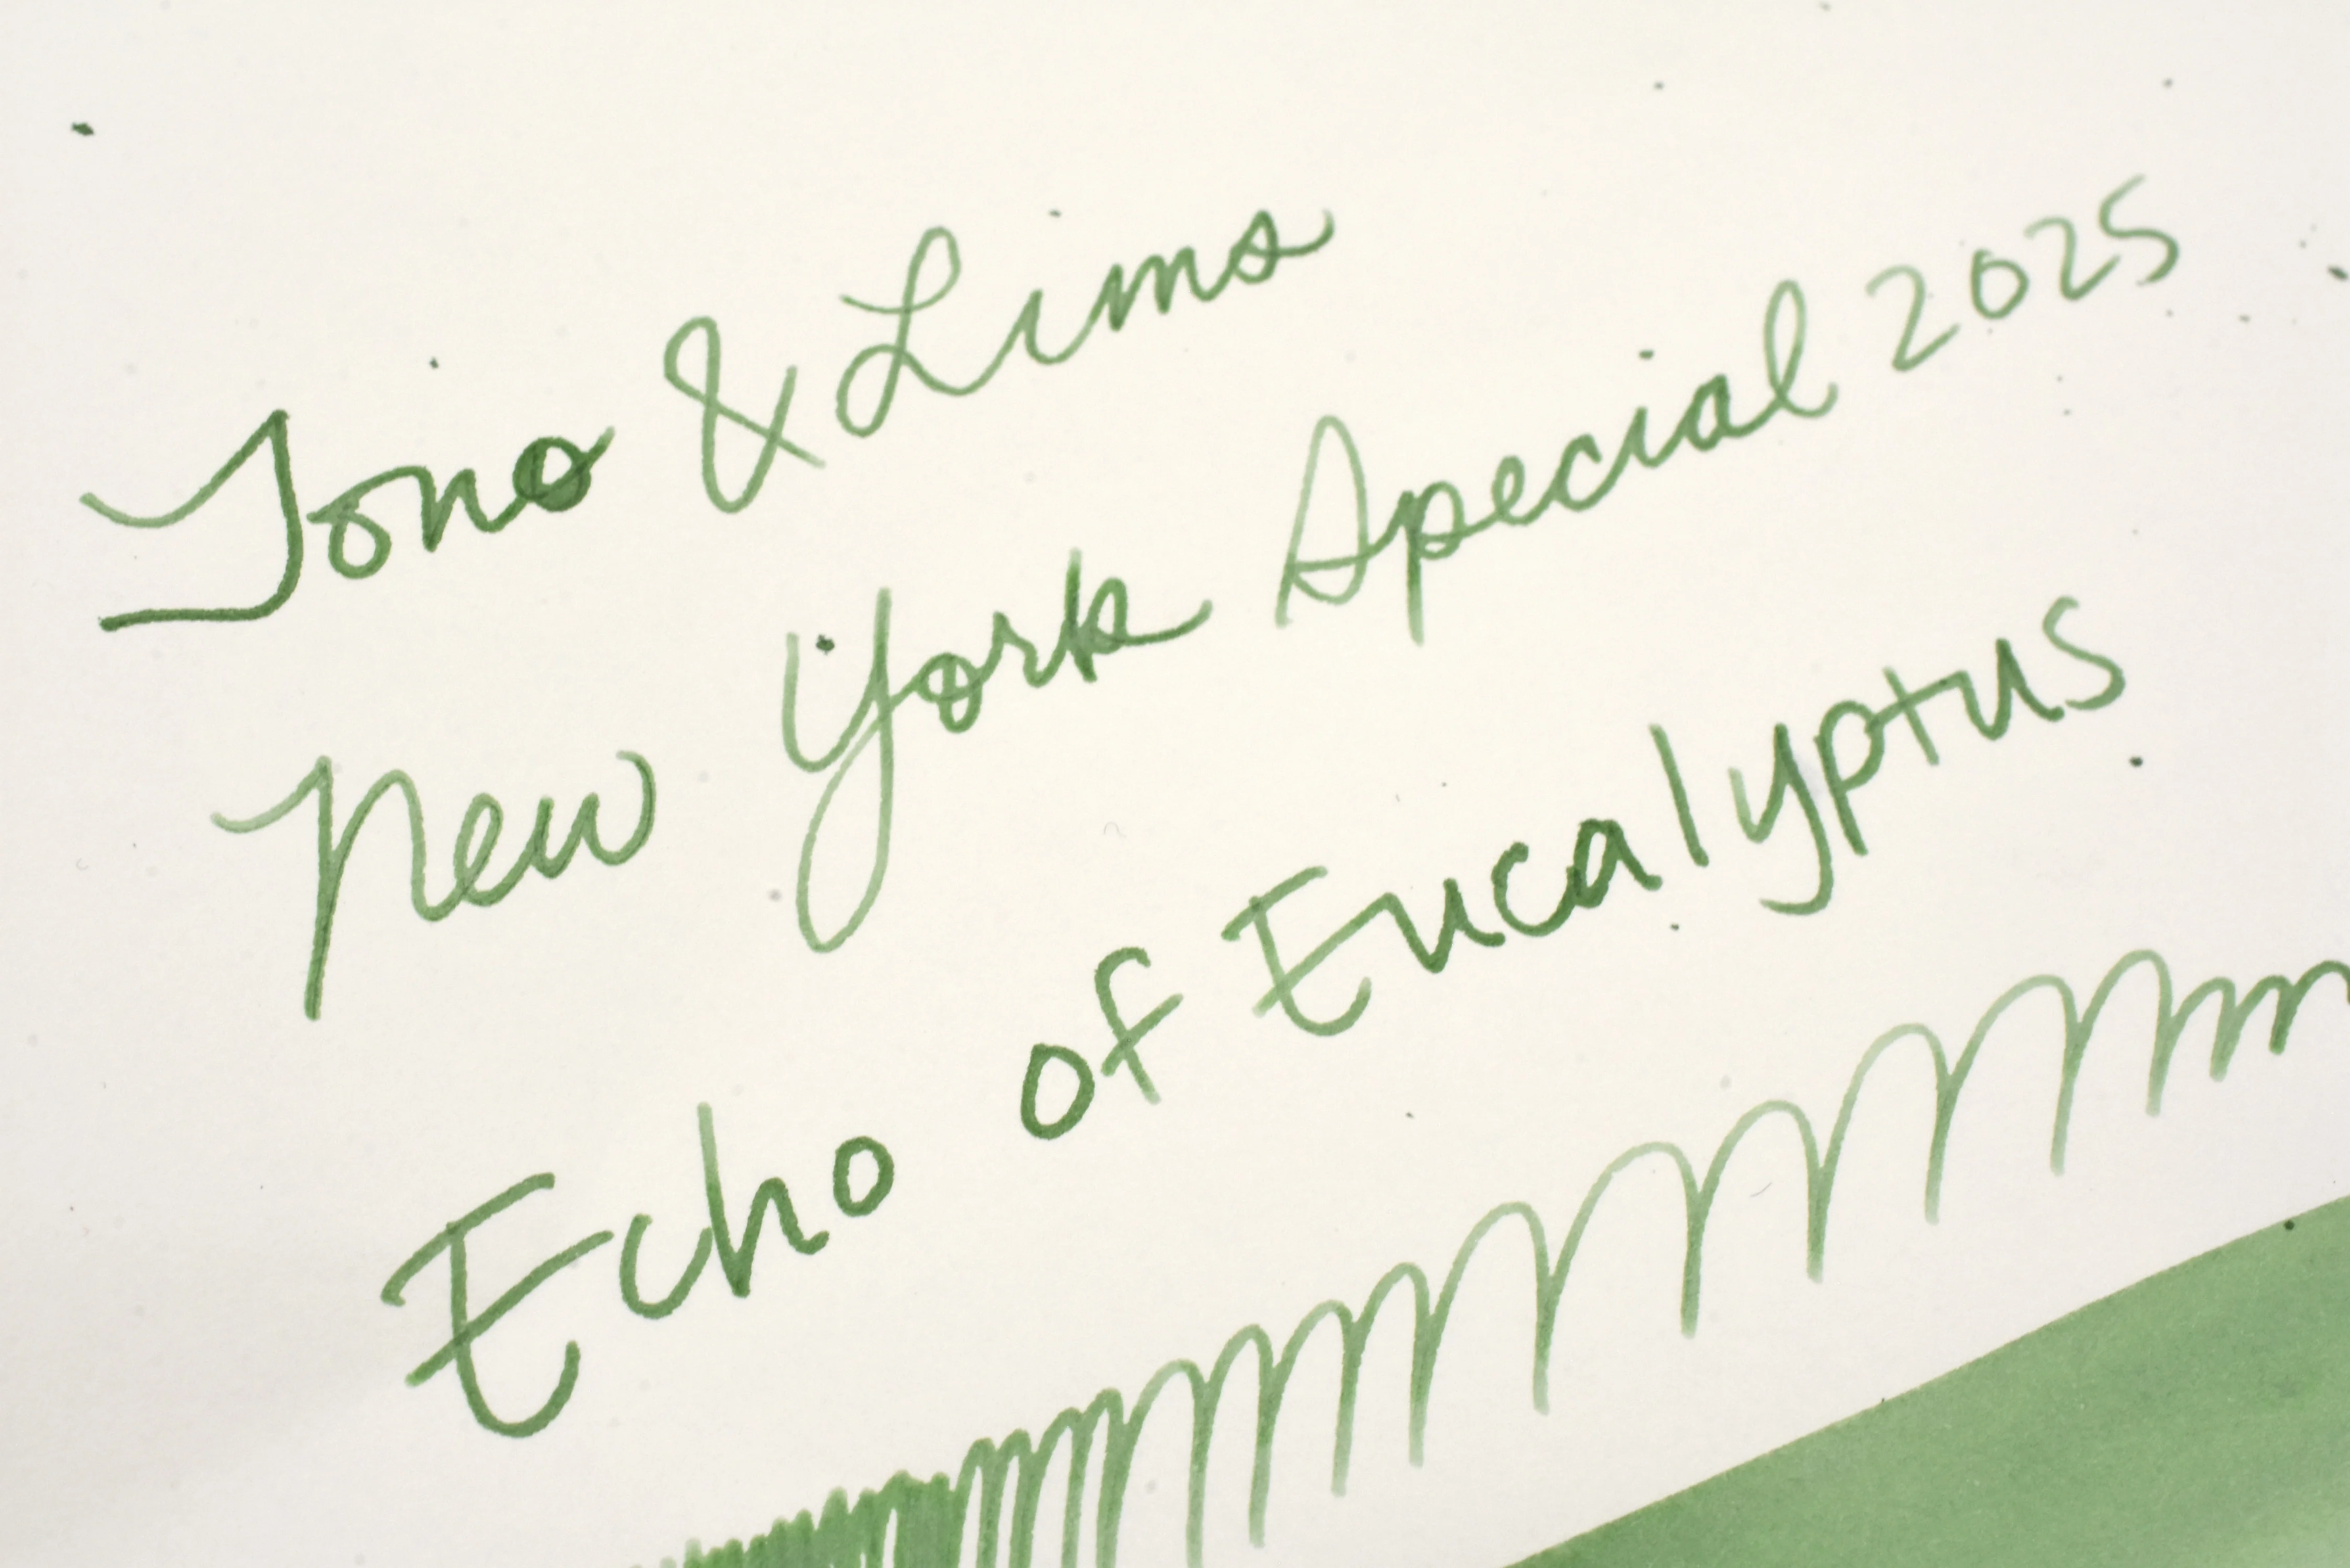 Tono & Lims
New York Special 2025
Echo of Eucalyptus